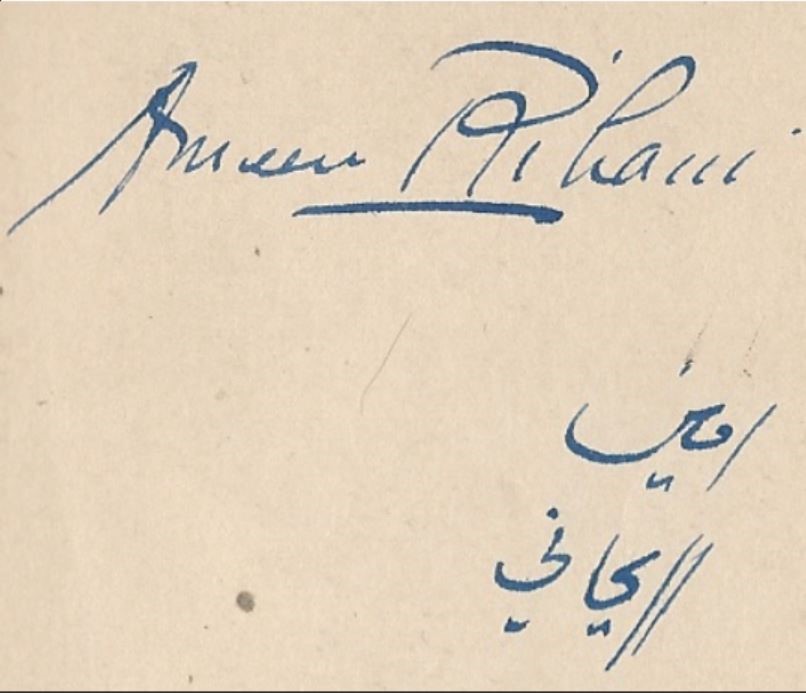 Ameen Rihani
امين
الريحاني